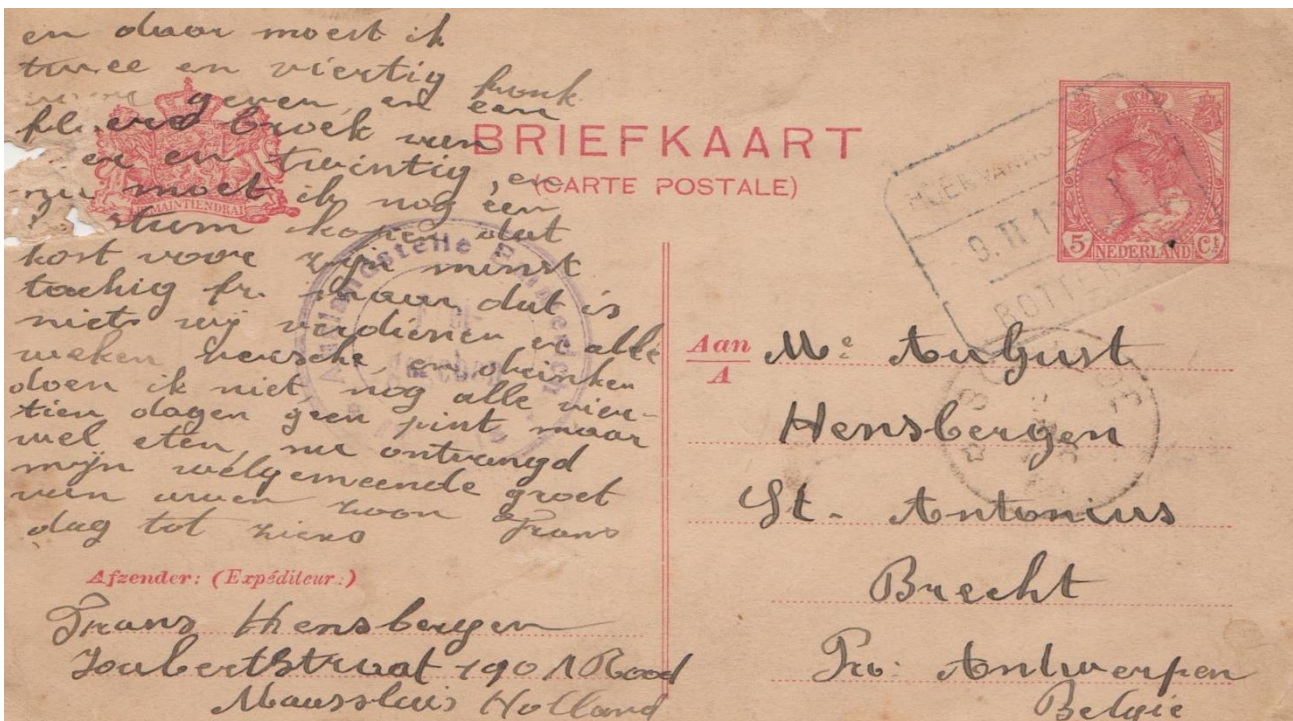 en daar moest ik
twee en viertig frank
geven, en een
broek van
en twintig, en
nu moet ik nog een
kopen dat
kost voor zijn minst
tachig fr. maar dat is
niets wij verdienen er alle
weken versche, en drinken
doen ik niet nog alle vier-
tien dagen geen pint maar
wel eten, nu ontvangd
mijn welgemeende groet
van uwen zoon Frans
dag tot ziens
JE MAINTIENDRAI
BRIEFKAART
(CARTE POSTALE)
Auslandstelle Emmerich
HOEK VAN HO
9.II.1
ROTTERD
5 NEDERLAND Ct
Aan
A
Me August
Hensbergen
St. Antonius
Brecht
Pro: Antwerpen
Belgie
Afzender: (Expéditeur:)
Frans Hensbergen
Joubertstraat 190
Maassluis Holland